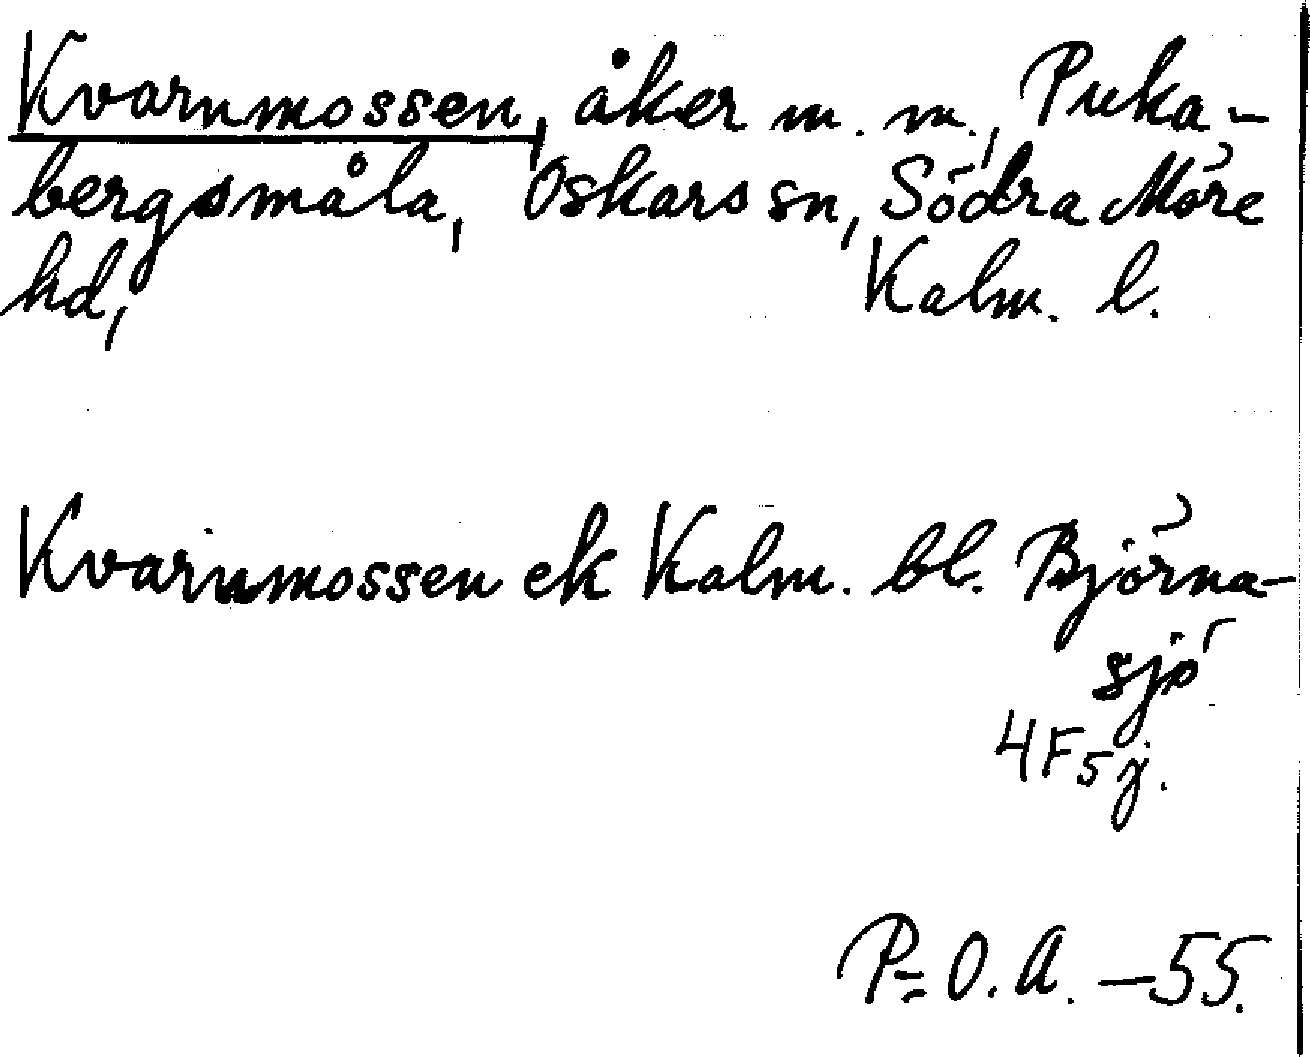 Kvarnmossen, åker m. m., Puka-
bergsmåla, Oskars sn, Södra Möre
hd, Kalm. l.
Kvarnmossen ek Kalm. bl. Björna-
sjö
4F5j.
P=O.A. -55.